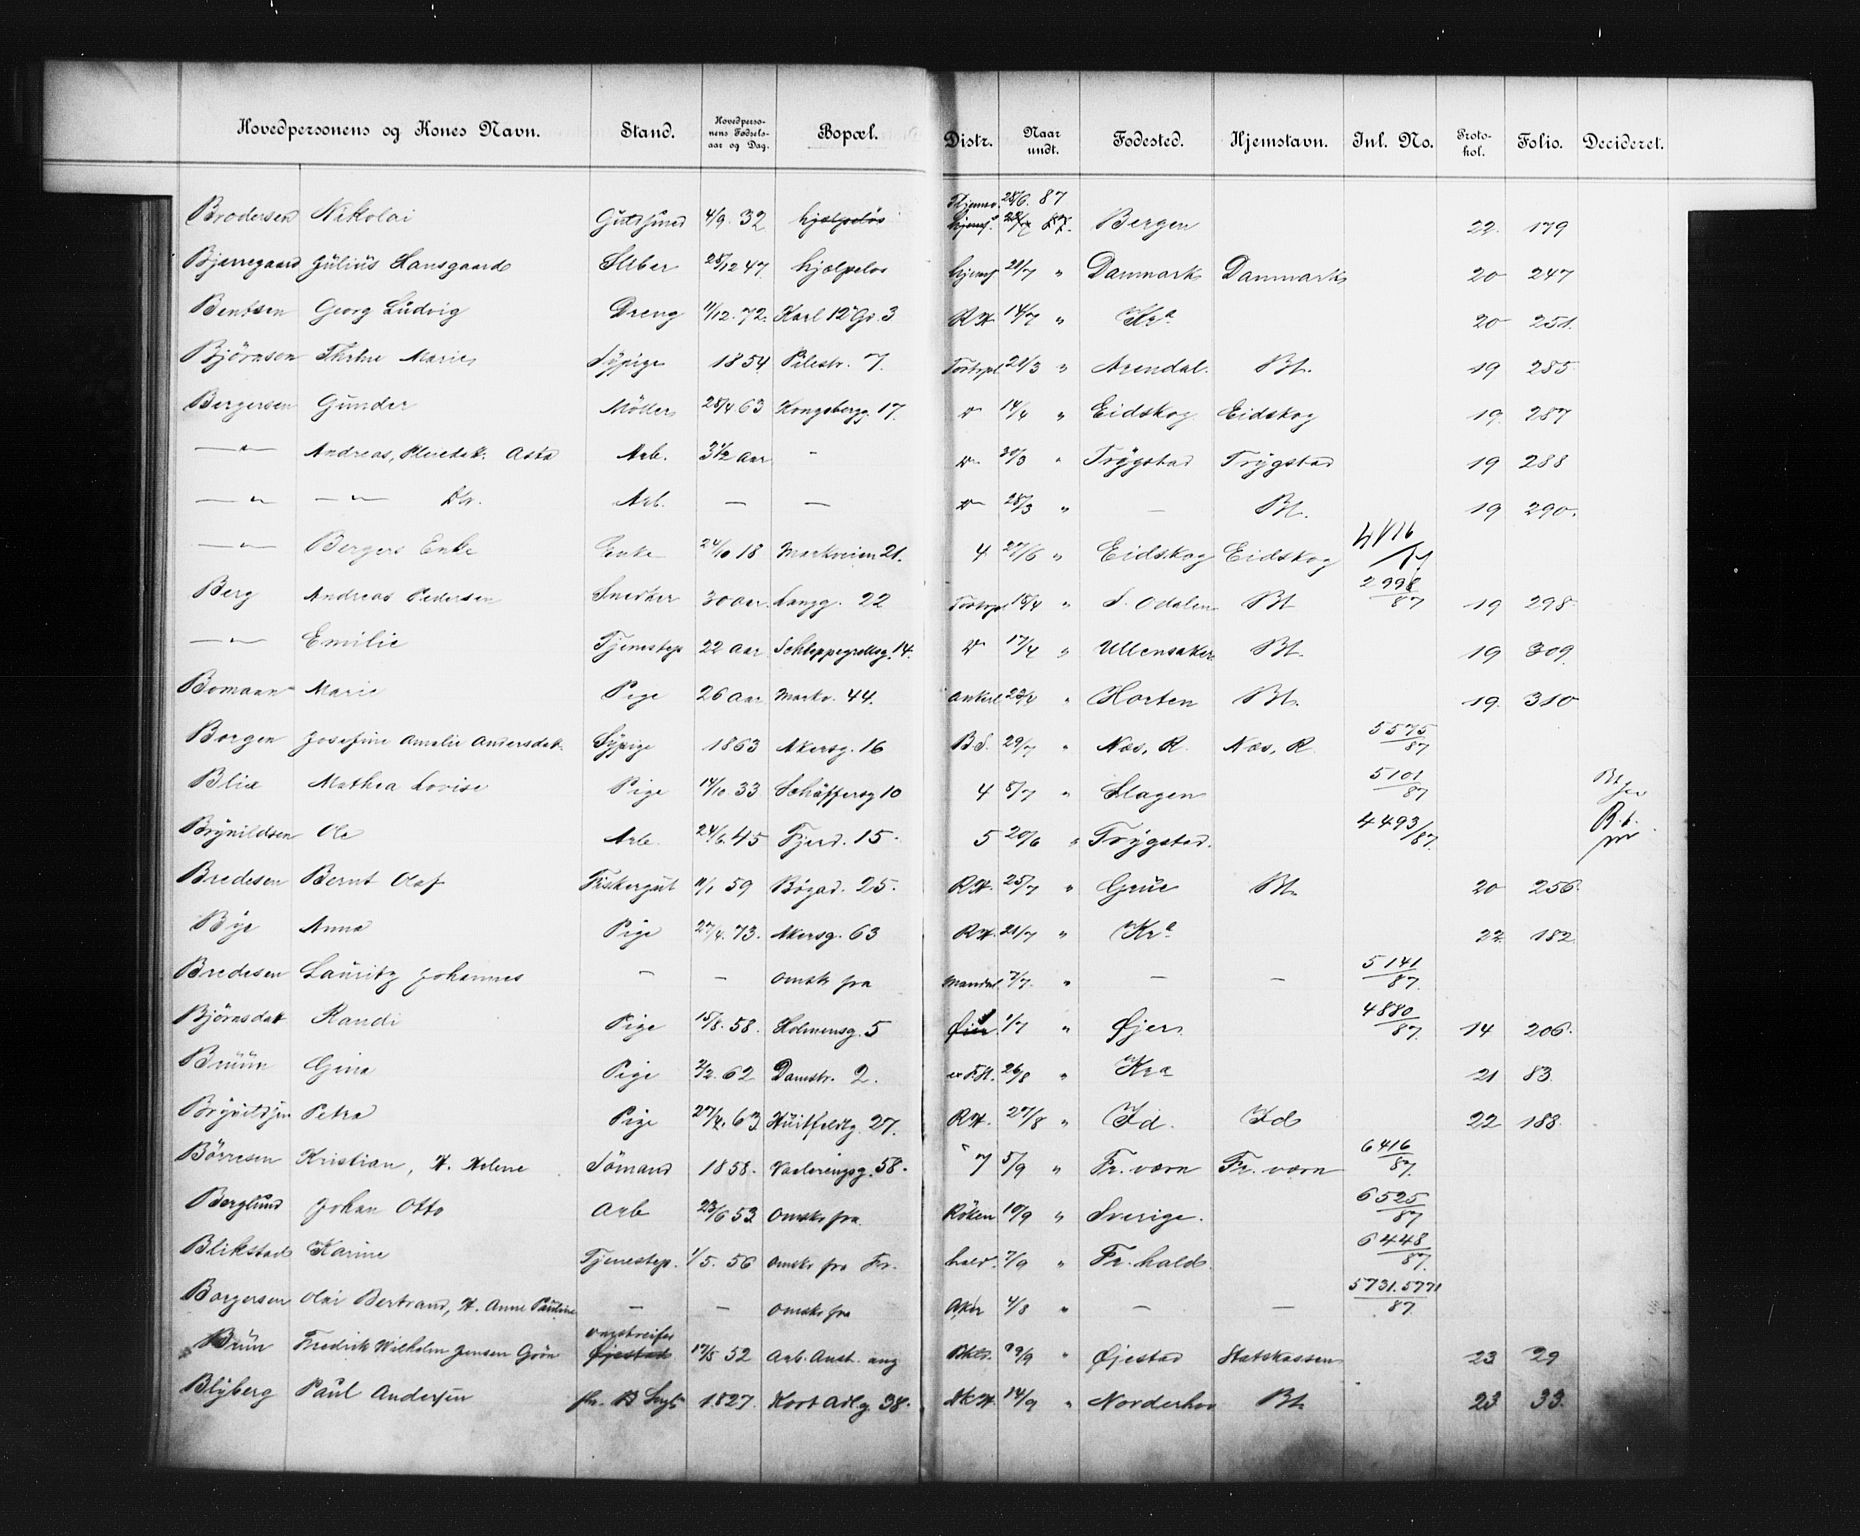 Hovedpersonens og Kones Navn. Stand. Hovedperso-nens Fødsels-aar og Dag. Bopæl. Distr. Naar undt. Fødested. Hjemstavn. Inl. No. Proto-kol. Folio. Decideret.
Brodersen Nikolai 4/9. 32 hjælpeløs 28/6. 87 Bergen 22. 179
Bjerregaard Julius Hansgaard 28/12 47 hjælpeløs 21/7 " Danmark Danmark 20 247
Bentsen Georg Ludvig Dreng 11/12. 72. Karl 12 Gd. 3 R.H. 14/7 " Kra 20 251.
Björnson Thrine Marie Sypige 1854 Pilestr. 7. 21/3 " Arendal. Bt. 19 285
Bergersen Gunder Möller 28/4 63 Kongsbergg. 17. " 14/4 " Eidskog Eidskog 19. 287
— " — Andreas, Asta Arb. 3 1/2 aar - " 20/3 " Trygstad Trygstad 19 288
— " — — " — Do. Arb. — — " 28/3 " — Bt. 19 290.
— " — Bergers Enke Enke 24/10 18 Markveien 21. 4 27/6 " Eidskog Eidskog 4816
Berg Andreas Pedersen Snedker 30 aar Langg. 22 18/4 " S. Odalen Bt 2998/87 19 298
— " — Emilie Tjenestep 22 aar Schleppegrellsg. 14. " 17/4 " Ullensaker Bt. 19 309.
Bomann Marie Pige 26 aar Markv. 44. Ankerl 23/4 " Horten Bt. 19. 310
Borgen Josefine Amalie Andersdat. Sypige 1863 Akersg. 16 B.S. 29/7 " Næs, R. Næs, R. 5575/87
Blix Mathea Lovise Pige 14/10 33 Schäffersg 10 4 5/7 " Slagen 5101/87 Bt
Brynildsen Ole Arb. 24/6. 45 Fjerd. 15. 5 20/6 " Trygstad. 4493/87. B.t.
Bredesen Bernt Olaf Fiskergut 11/1 59 Bögad. 25. R.H. 25/7 " Grue Bt. 20 256.
Bye Anna Pige 27/4. 73. Akersg. 63 R.H. 21/7 " Kra 22 182
Bredesen Lauritz Johannes — — omsk fra Mandal. 7/7. " — — 5141/87.
Björnsdat. Randi Pige 15/8. 58. Holmensg. 5 Öier 1/7 " Öjer. 4880/87. 14 206.
Bruun Gina Pige 2/2. 62 Damstr. 2. 26/8 " Kra 21 83.
Brynildsen Petra Pige 27/4. 63 Huitfeldtg. 27. R.H. 27/8 " Id. Id 22 183.
Börresen Kristian, H. Helene Sömand 1858. Vaalerengsg. 58. 7 5/9 " Fr. værn Fr. værn 6416/87.
Berglund Johan Otto Arb 23/6 53 Omsk fra Röken 10/9 " Sverige. 6525/87
Blikstad Karine Tjenestep. 1/5. 56 omsk fra Fr. hald. 7/9 " Fr. hald. 6448/87.
Borgersen Olai Bertrand, H. Anne Pauline — — omsk fra Aker 4/8 " — — 5731.5771/87.
Brün Fredrik Wilhelm Jensen Grön omstreifer Öjestad 17/5 52 Arb. Anst. 29/9 " Öjestad Statskassen 23 29
Blyberg Paul Andersen 1827. Kort Adlg. 38. 14/9 " Norderhov Bt 23. 33.